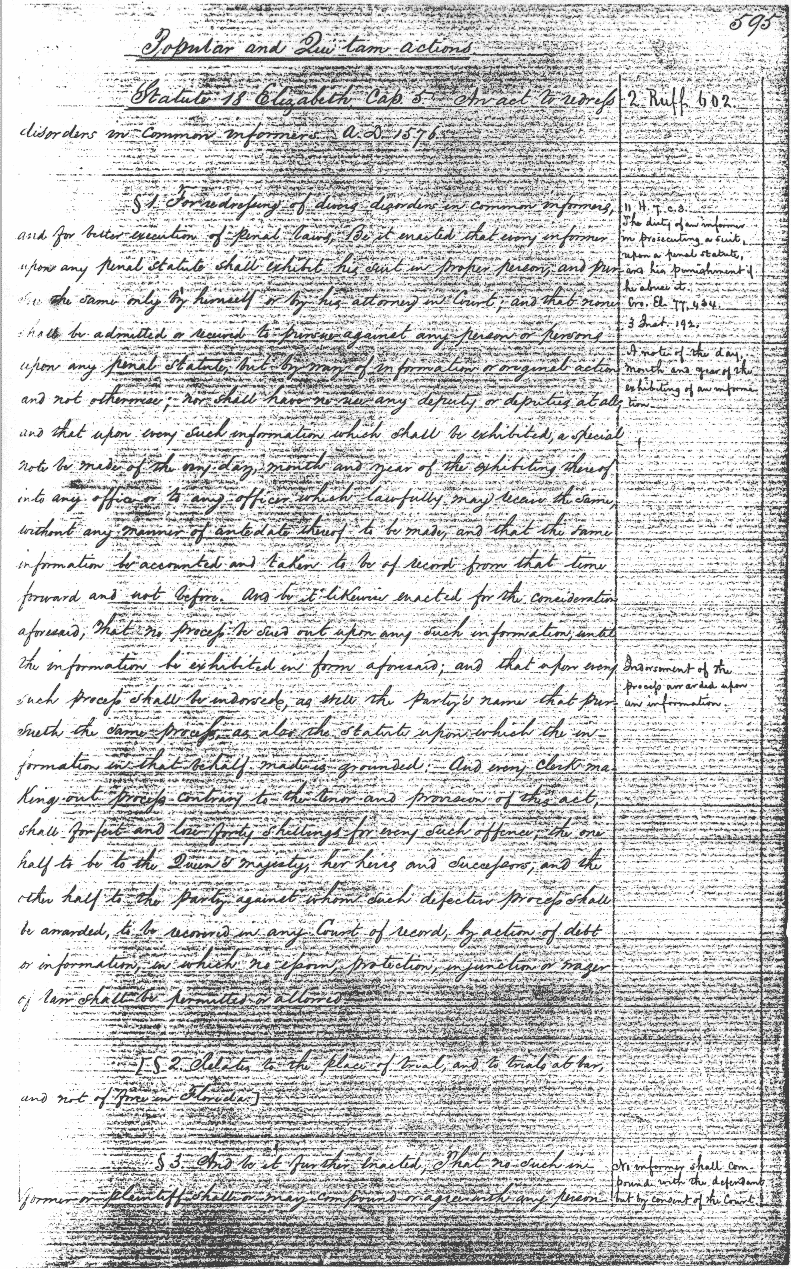 595
Popular and Qui tam actions
Statute 18 Elizabeth Cap. 5. An act to redress
2 Ruff 602.
disorders in common informers A.D. 1576
§ 1. For redressing of divers disorders in common informers,
and for better execution of penal laws, Be it enacted that every informer
upon any penal statute shall exhibit his suit in proper person, and pur-
sue the same only by himself or by his attorney in Court; and that none
shall be admitted or received to pursue against any person or persons
upon any penal Statute, but by way of information or original action
and not otherwise; nor shall have no use any deputy or deputies at all,
and that upon every such information which shall be exhibited, a special
note be made of the very day, month and year of the exhibiting thereof
into any office or to any officer which lawfully may receive the same,
without any manner of antedate thereof to be made, and that the same
information be accounted and taken to be of record from that time
forward and not before. And be it likewise enacted for the consideration
aforesaid, That no process be sued out upon any such information, until
the information be exhibited in form aforesaid; and that upon every
such process shall be indorsed, as well the party's name that pur-
sueth the same process, as also the statute upon which the in-
formation in that behalf made is grounded: And every Clerk ma-
king out process contrary to the tenor and provision of this act,
shall forfeit and lose forty shillings for every such offence, the one
half to be to the Queen's majesty, her heirs and successors, and the
other half to the party against whom such defective process shall
be awarded, to be recovered in any Court of record, by action of debt
or information, in which no essoin, protection, injunction or wager
of law shall be permitted or allowed
11 H. 7. c. 3.
The duty of an informer
in prosecuting a suit,
upon a penal statute,
and his punishment if
he abuse it.
Cro. El. 77, 434.
3 Inst. 192.
A note of the day,
month and year of the
exhibiting of an informa-
tion
Indorsement of the
process awarded upon
an information.
[§ 2. Relates to the place of trial, and to trials at bar,
and not of force in Florida.]
§ 3. And be it further enacted, That no such in-
former or plaintiff shall or may compound or agree with any person
No informer shall com-
pound with the defendant
but by consent of the Court